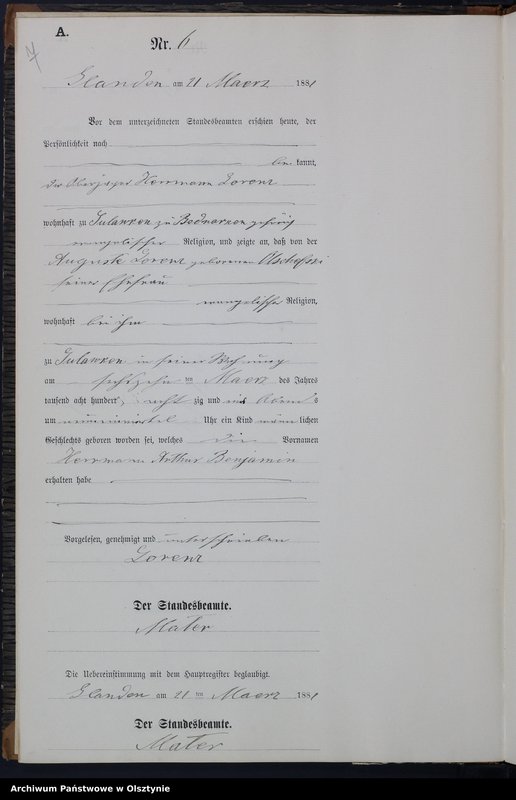 A.
Nr. 6
Glanden am 21 Maerz 1881
Vor dem unterzeichneten Standesbeamten erschien heute, der
Persönlichkeit nach
be kannt,
der Oberjäger Herrmann Lorenz
wohnhaft zu Sulawken zu Bednarken gehörig
evangelischer Religion, und zeigte an, daß von der
Auguste Lorenz geborenen
seiner Ehefrau
evangelischer Religion,
wohnhaft bei ihm
zu Sulawken in seiner Wohnung
am sechszehn ten Maerz des Jahres
tausend acht hundert achtzig und eins Abends
um neun Uhr ein Kind männlichen
Geschlechts geboren worden sei, welches die Vornamen
Herrmann Arthur Benjamin
erhalten habe
Vorgelesen, genehmigt und unterschrieben
Lorenz
Der Standesbeamte.
Mater
Die Uebereinstimmung mit dem Hauptregister beglaubigt.
Glanden am 21 ten Maerz 1881
Der Standesbeamte.
Mater
Archiwum Państwowe w Olsztynie